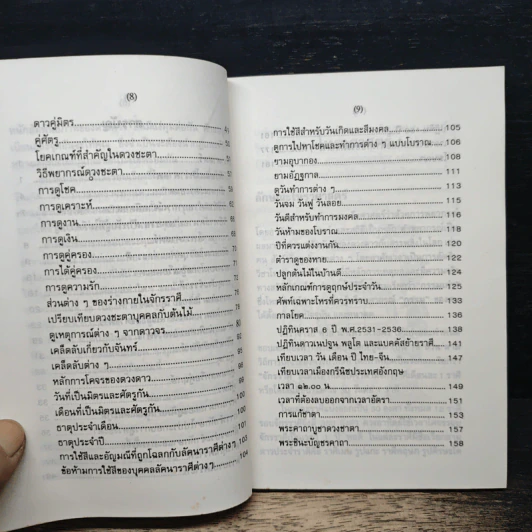 (8)
ดาวคู่มิตร
คู่ศัตรู
โยคเกณฑ์ที่สำคัญในดวงชะตา
วิธีพยากรณ์ดวงชะตา
การดูโชค
การดูเคราะห์
การดูงาน
การดูเงิน
การดูคู่ครอง
การได้คู่ครอง
การดูความรัก
ส่วนต่าง ๆ ของร่างกายในจักรราศี
เปรียบเทียบดวงชะตาบุคคลกับต้นไม้
ดูเหตุการณ์ต่าง ๆ จากดาวจร
เคล็ดลับเกี่ยวกับจันทร์
เคล็ดลับต่าง ๆ
หลักการโคจรของดวงดาว
วันที่เป็นมิตรและศัตรูกัน
เดือนที่เป็นมิตรและศัตรูกัน 100
ธาตุประจำเดือน 100
ธาตุประจำปี 101
การใช้สีและอัญมณีที่ถูกโฉลกกับลัคนาราศีต่างๆ 103
ข้อห้ามการใช้สีของบุคคลลัคนาราศีต่างๆ 104
(9)
การใช้สีสำหรับวันเกิดและสีมงคล 105
ดูการไปหาโชคและทำการต่าง ๆ แบบโบราณ 106
ยามอุบากอง 108
ยามอัฏฐกาล 111
ดูวันทำการต่าง ๆ 113
วันจม วันฟู วันลอย 115
วันดีสำหรับทำการมงคล 116
วันห้ามของโบราณ 118
ปีที่ควรแต่งงานกัน 120
ตำราดูของหาย 122
ปลูกต้นไม้ในบ้านดี 124
หลักเกณฑ์การดูฤกษ์ประจำวัน 125
ศัพท์เฉพาะโหรที่ควรทราบ 133
กาลโยค 136
ปฏิทินคราส 6 ปี พ.ศ.2531-2536 138
ปฏิทินดาวเนปจูน พลูโต และแบคคัสย้ายราศี 141
เทียบเวลา วัน เดือน ปี ไทย-จีน 147
เทียบเวลาเมืองกรีนิชประเทศอังกฤษ
เวลา ๑๒.๐๐ น. 149
เวลาที่ต้องลบออกจากเวลาอัตรา 151
การแก้ชาตา 153
พระคาถาบูชาดวงชาตา 157
พระชินะบัญชรคาถา 158